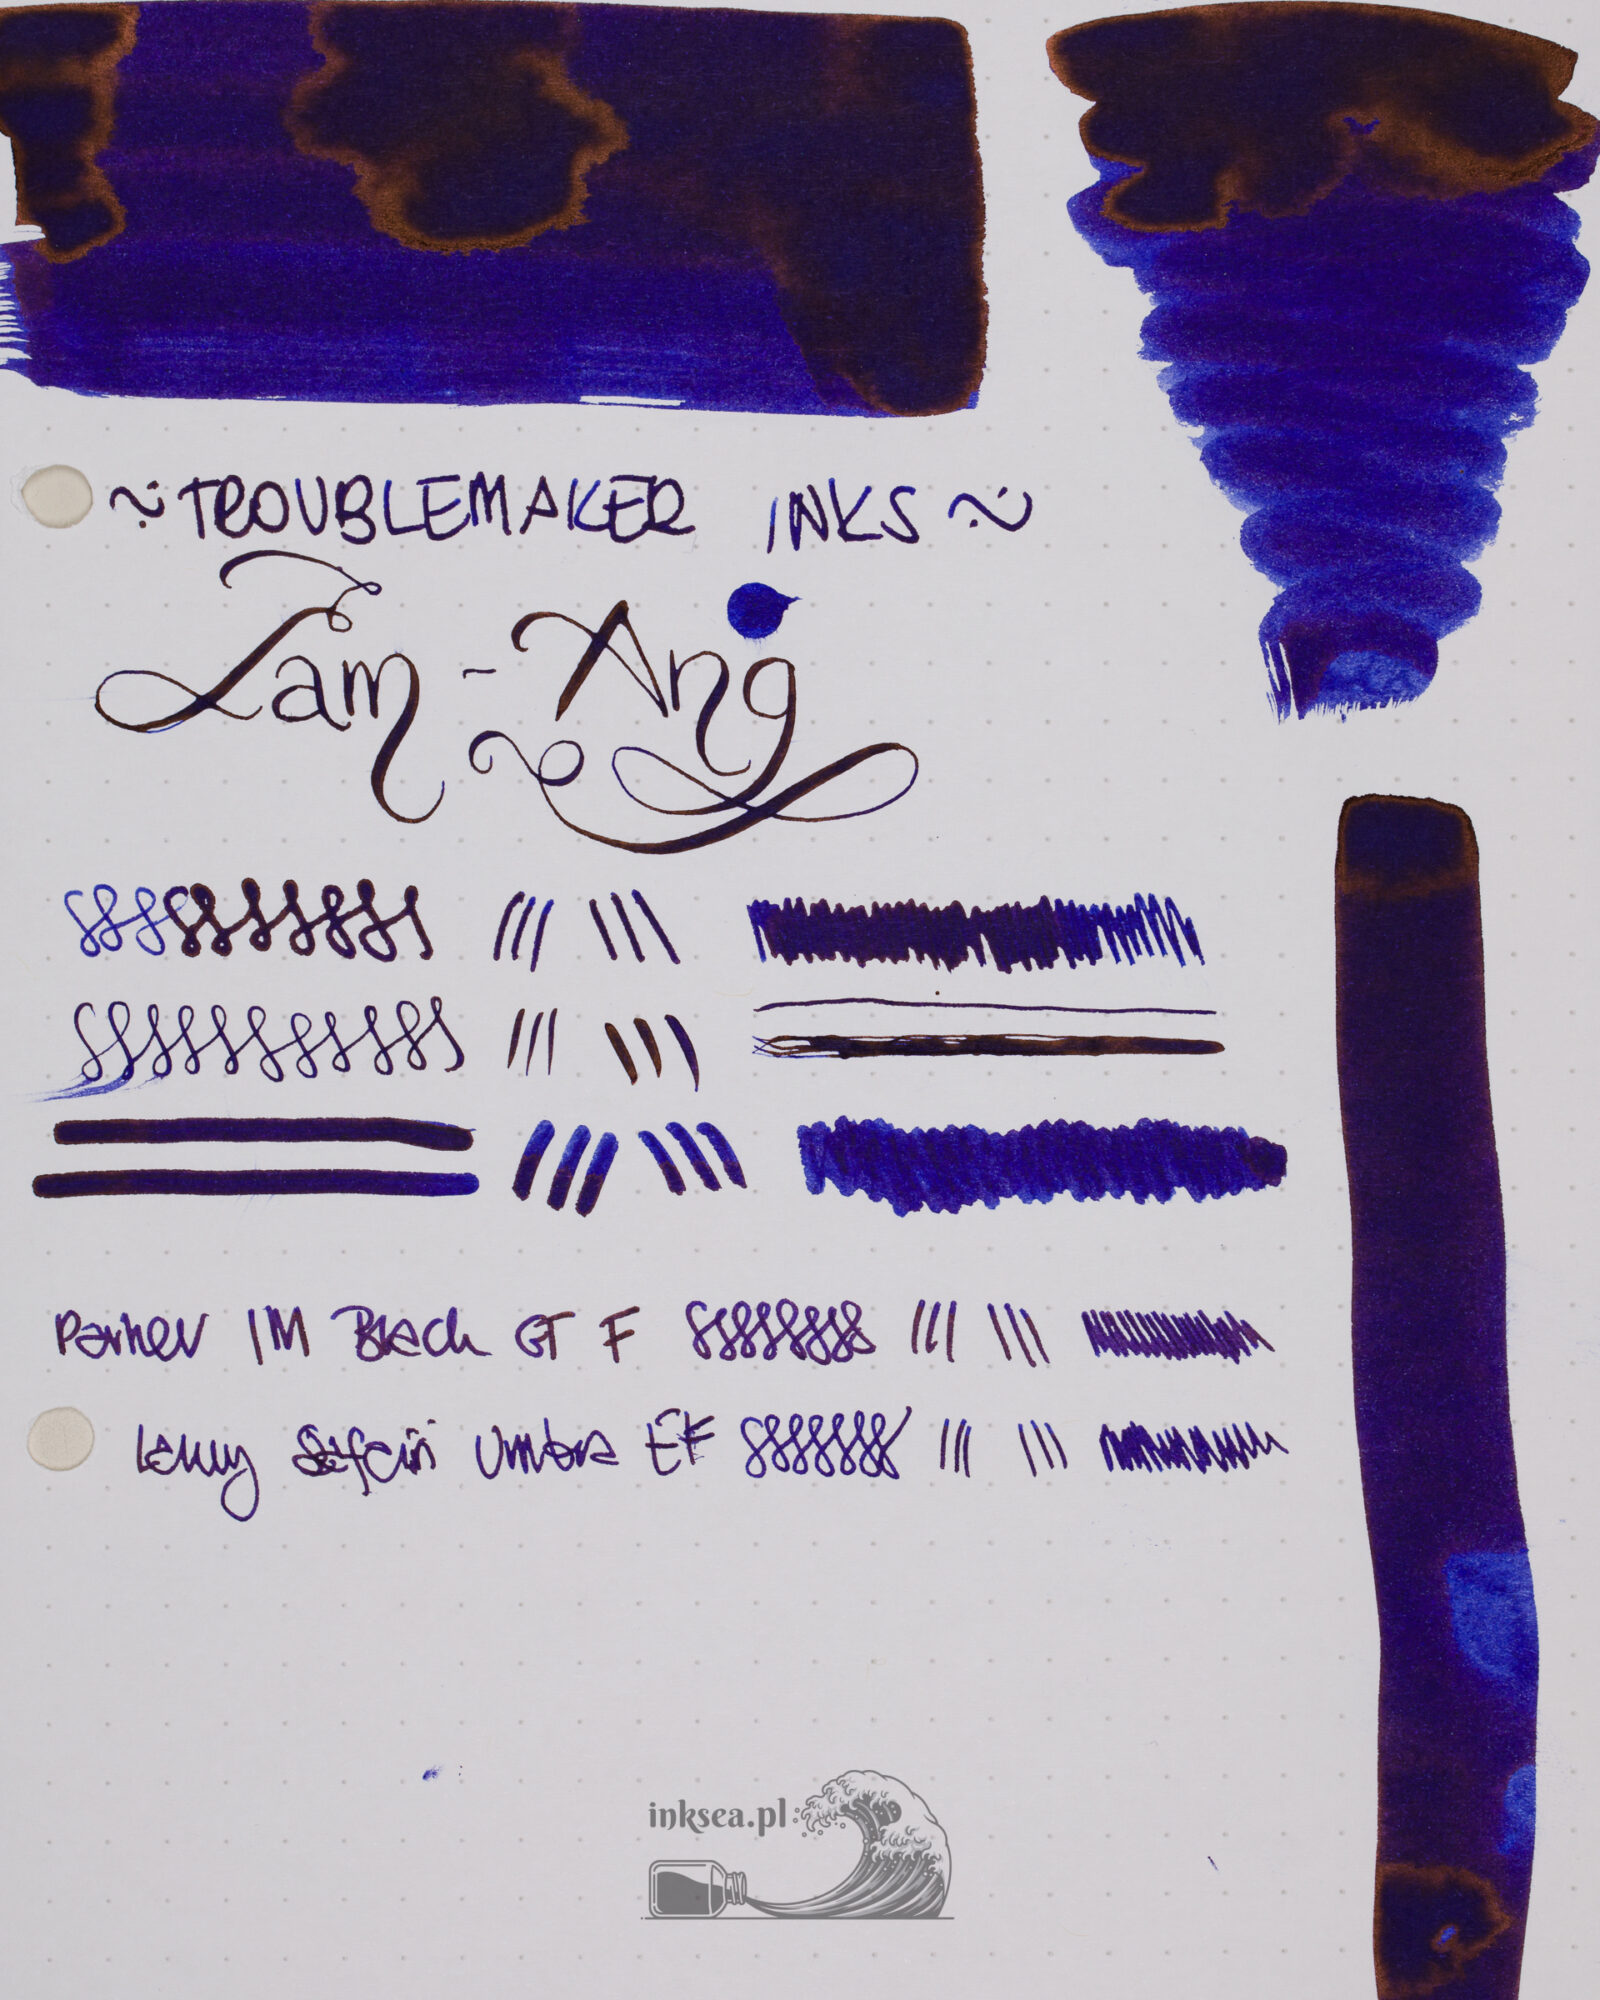 ~ TROUBLEMAKER INKS ~
Lam-Ang
Parker IM Black GT F
Lamy Safari Umbra EF
inksea.pl